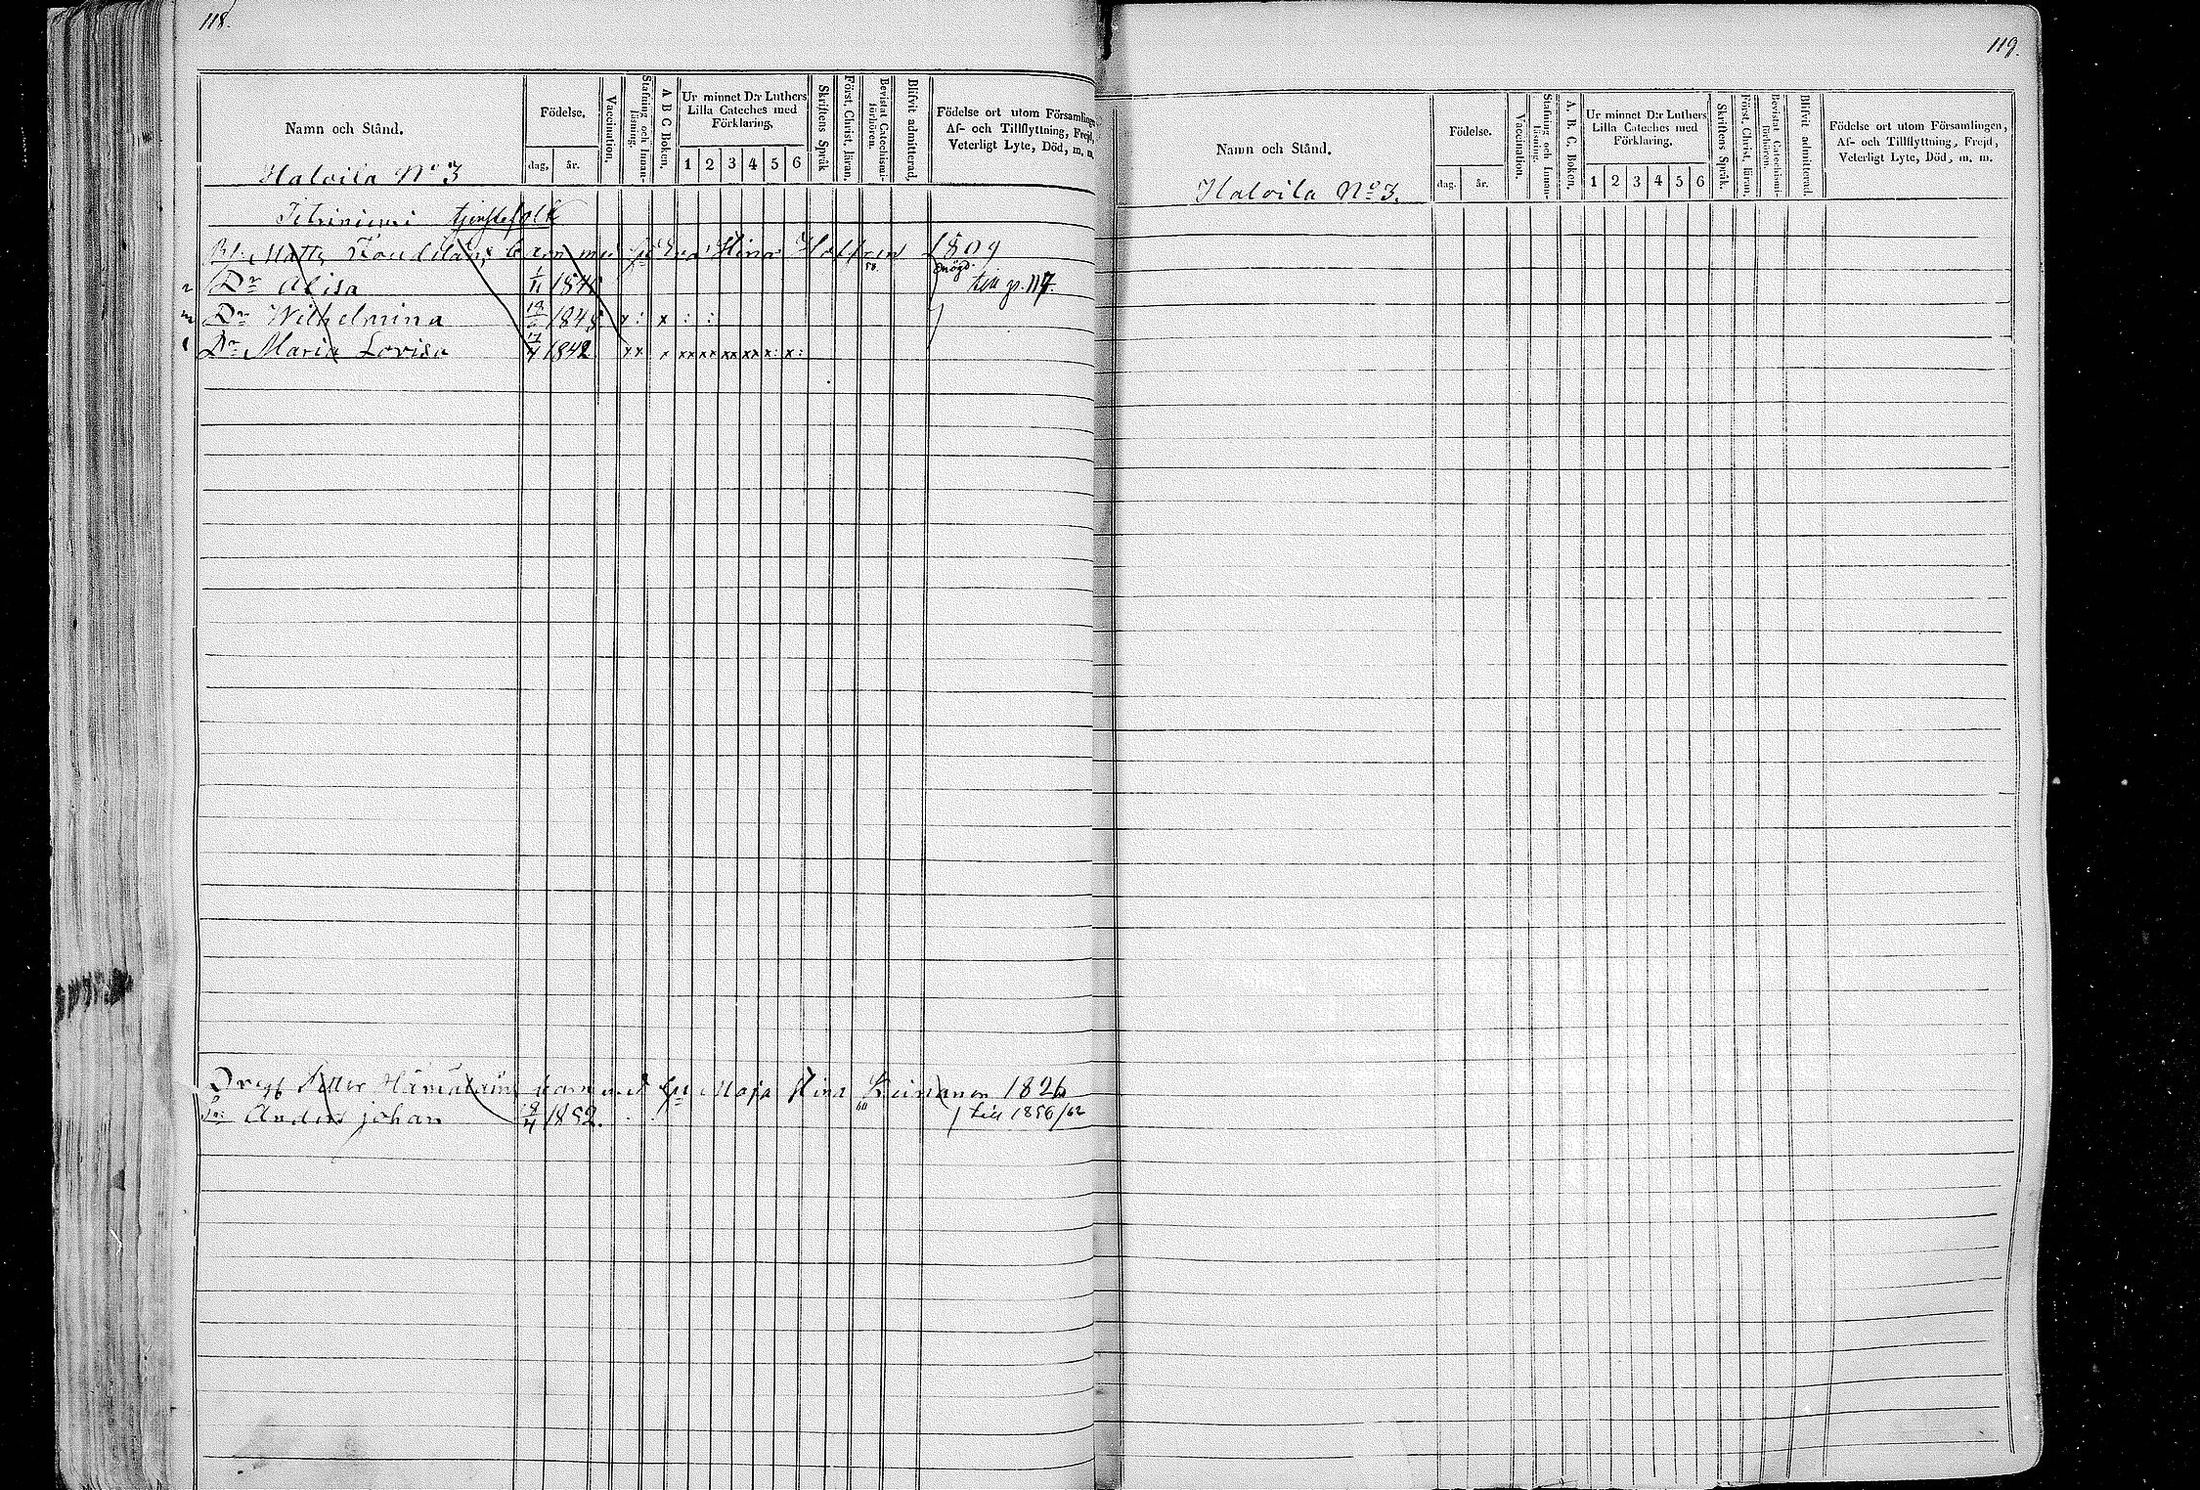 118.
Namn och Stånd.
Födelse.
dag. år.
Vaccination.
Stafning och Innan-läsning.
A B C Boken.
Ur minnet D:r Luthers
Lilla Cateches med
Förklaring.
1 2 3 4 5 6
Skriftens Språk
Först. Christ. läran.
Bevistat Catechismi-förhören.
Blifvit admitterad
Födelse ort utom Församlingen,
Af- och Tillflyttning, Frejd,
Veterligt Lyte, Död, m. m.
Haloila No 3
tjenstefolk
Matts barn med Eva Stina 1809
Dr Alisa
Dr Wilhelmina 1845 x : x : :
Dr Maria Lovisa 1842 xx x xx xx xx xx x: x:
Petter barn med Maja Stina 1826
Anders Johan 8/4 1852.
119.
Namn och Stånd.
Födelse.
dag. år.
Vaccination.
Stafning och Innan-läsning.
A. B. C. Boken.
Ur minnet D:r Luthers
Lilla Cateches med
Förklaring.
1 2 3 4 5 6
Skriftens Språk.
Först. Christ. läran.
Bevistat Catechismi-förhören.
Blifvit admitterad.
Födelse ort utom Församlingen,
Af- och Tillflyttning, Frejd,
Veterligt Lyte, Död, m. m.
Haloila No 3.